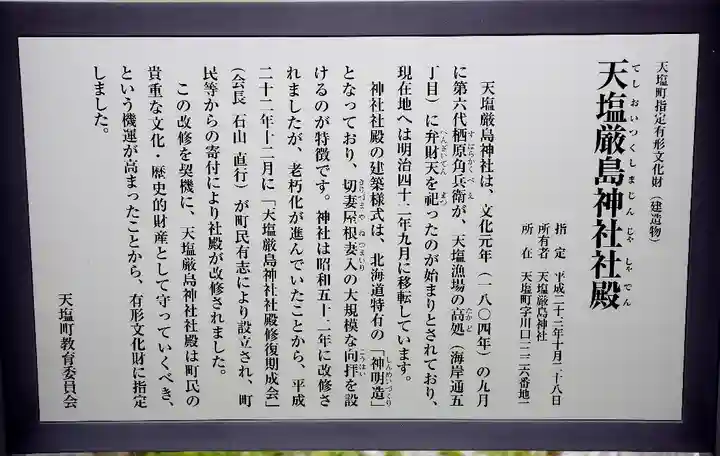 天塩町指定有形文化財（建造物）
天塩厳島神社社殿
てしおいつくしまじんじゃしゃでん
指定　平成二十三年十月二十八日
所有者　天塩厳島神社
所在　天塩町字川口一二二六番地一
天塩厳島神社は、文化元年（一八〇四年）の九月
に第六代栖原角兵衛が、天塩漁場の高処（海岸通五
丁目）に弁財天を祀ったのが始まりとされており、
現在地へは明治四十二年九月に移転しています。
神社社殿の建築様式は、北海道特有の「神明造」
となっており、切妻屋根妻入の大規模な向拝を設
けるのが特徴です。神社は昭和五十二年に改修さ
れましたが、老朽化が進んでいたことから、平成
二十二年十二月に「天塩厳島神社社殿修復期成会」
（会長　石山　直行）が町民有志により設立され、町
民等からの寄付により社殿が改修されました。
この改修を契機に、天塩厳島神社社殿は町民の
貴重な文化・歴史的財産として守っていくべき、
という機運が高まったことから、有形文化財に指定
しました。
天塩町教育委員会